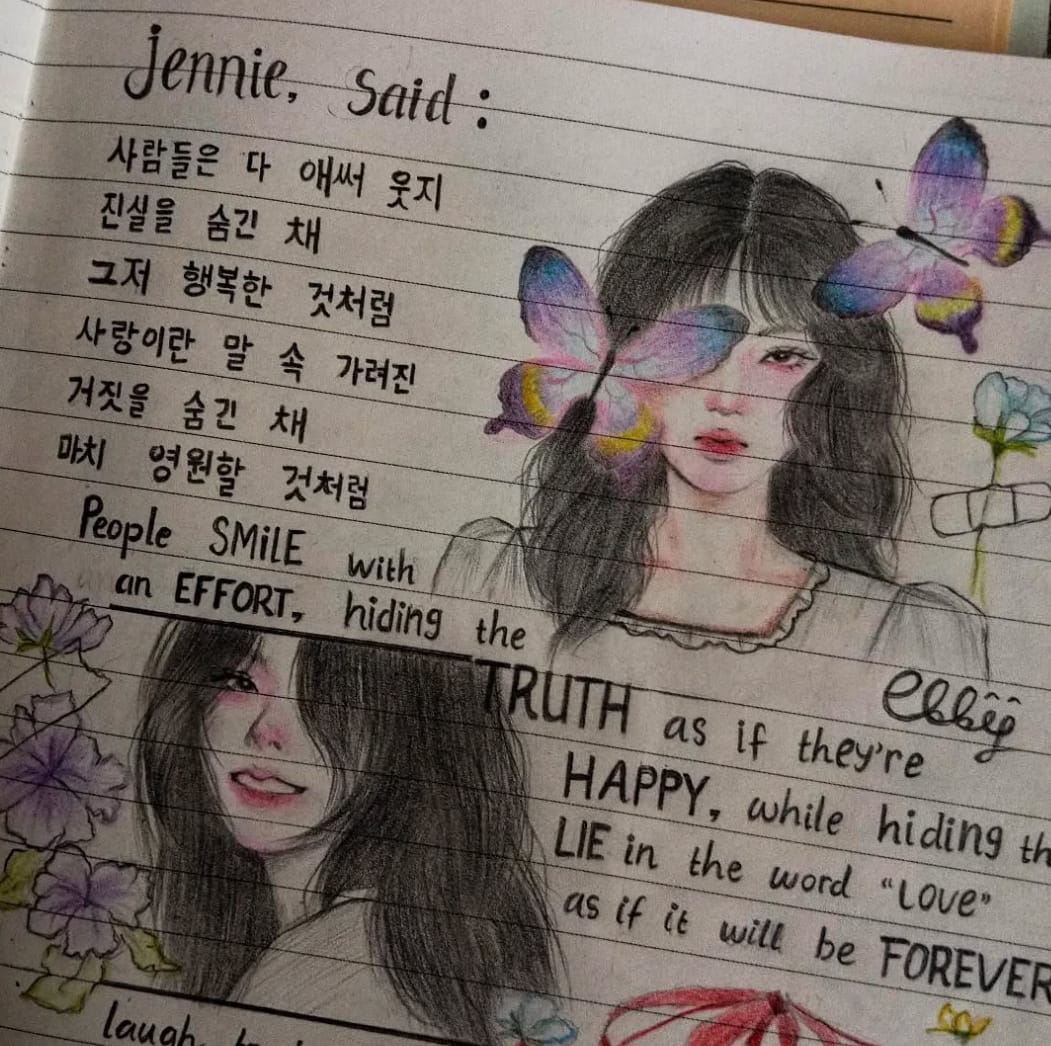 Jennie, Said :
사람들은 다 애써 웃지
진실을 숨긴 채
그저 행복한 것처럼
사랑이란 말 속 가려진
거짓을 숨긴 채
마치 영원할 것처럼
People SMiLE with
an EFFORT, hiding the
TRUTH as if they're
HAPPY, while hiding th
LIE in the word "LOVE"
as if it will be FOREVER
laugh